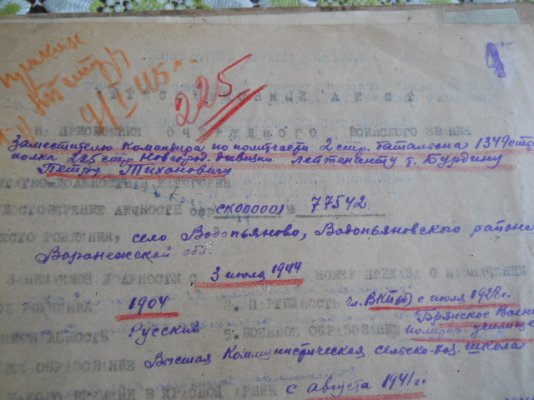 9/I-45
225
АТТЕСТАЦИОННЫЙ АКТ
НА ПРИСВОЕНИЕ ОЧЕРЕДНОГО ВОИНСКОГО ЗВАНИЯ
Заместителю Командира по политчасти 2 стр. батальона 1349 стр.
полка 225 стр. Новгород. дивизии лейтенанту т. Бурдину
Петру Тихоновичу
УДОСТОВЕРЕНИЕ ЛИЧНОСТИ СК000001 № 77542
МЕСТО РОЖДЕНИЯ: село Водопьяново, Водопьяновского района
Воронежской обл.
ЗАНИМАЕМОЙ ДОЛЖНОСТИ С 3 июля 1944 НОМЕР ПРИКАЗА О НАЗНАЧЕНИИ
ГОД РОЖДЕНИЯ 1904 3. ПАРТИЙНОСТЬ чл. ВКП(б) с июля 1928 г.
Русский 5. ВОЕННОЕ ОБРАЗОВАНИЕ Брянское Военно
политич. училище
ОБРАЗОВАНИЕ Высшая Коммунистическая сельско-хоз. школа
В КРАСНОЙ АРМИИ с августа 1941 г.